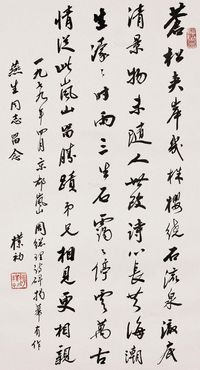 蒼松夾岸幾株櫻繞石流泉澈底
清景物未随人世改詩心長共海潮
生濛々時雨三生石靄々停雲萬古
情從此嵐山留勝蹟弟兄相見更相親
一九七九年四月京都嵐山周總理詩碑揭幕有作 樸初
燕生同志留念